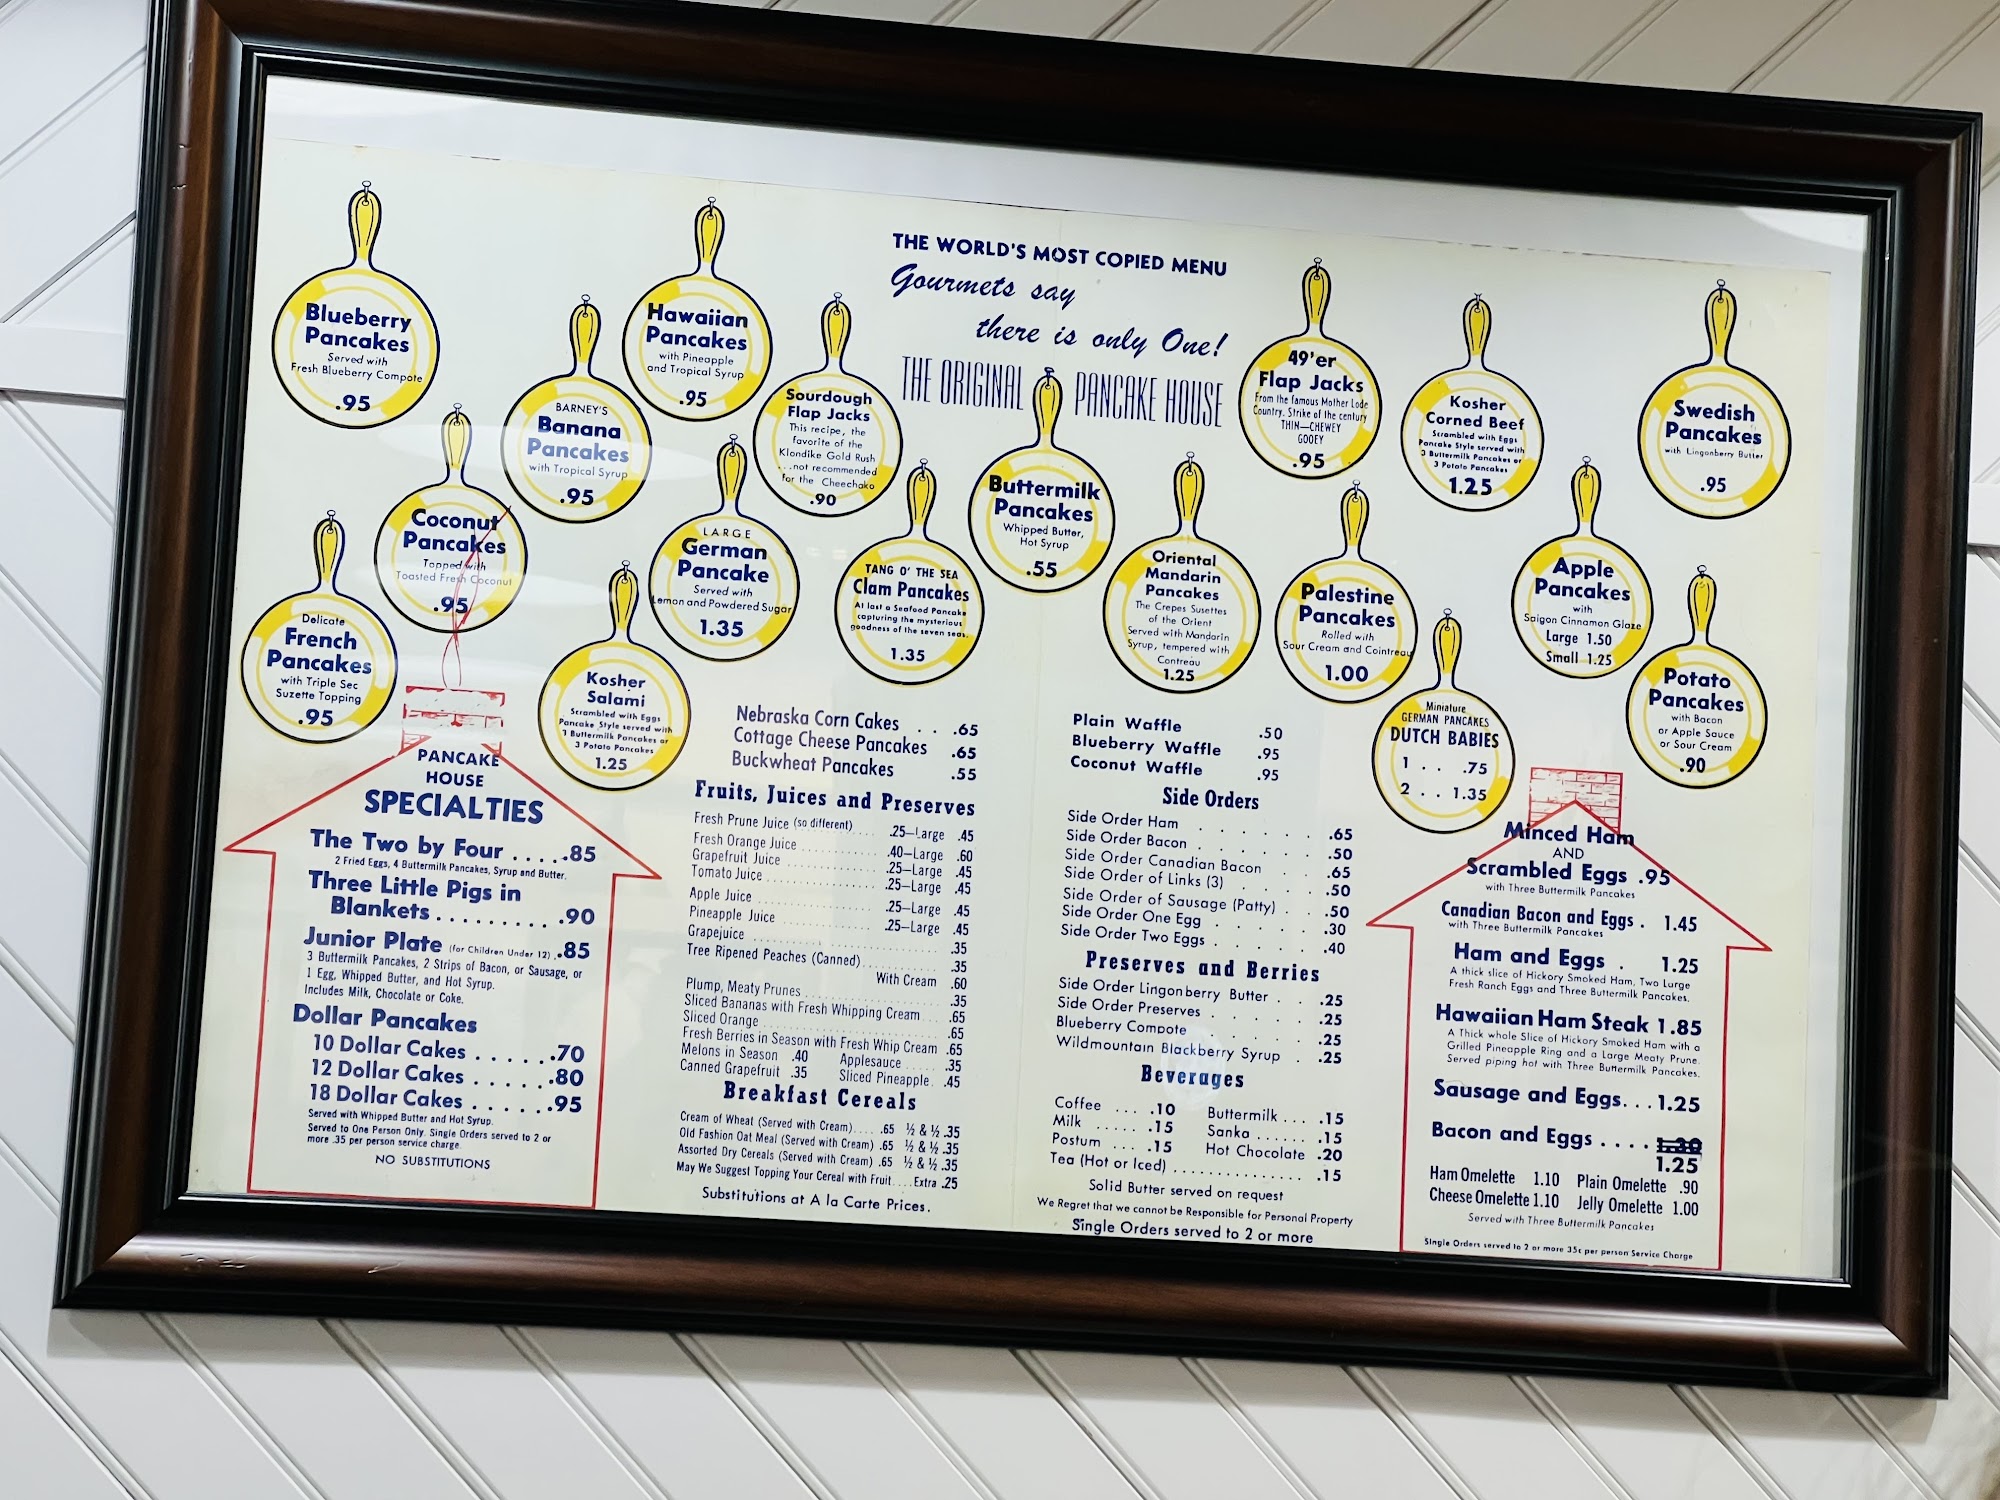 THE WORLD'S MOST COPIED MENU
Gourmets say
there is only One!
THE ORIGINAL PANCAKE HOUSE
Blueberry
Pancakes
Served with
Fresh Blueberry Compote
.95
BARNEY'S
Banana
Pancakes
with Tropical Syrup
.95
Hawaiian
Pancakes
with Pineapple
and Tropical Syrup
.95
Sourdough
Flap Jacks
This recipe, the
favorite of the
Klondike Gold Rush
...not recommended
for the Cheechako
.90
Coconut
Pancakes
Topped with
Toasted Fresh Coconut
.95
LARGE
German
Pancake
Served with
Lemon and Powdered Sugar
1.35
TANG O' THE SEA
Clam Pancakes
At last a Seafood Pancake
capturing the mysterious
goodness of the seven seas.
1.35
Buttermilk
Pancakes
Whipped Butter,
Hot Syrup
.55
Delicate
French
Pancakes
with Triple Sec
Suzette Topping
.95
Kosher
Salami
Scrambled with Eggs
Pancake Style served with
3 Buttermilk Pancakes or
3 Potato Pancakes
1.25
49'er
Flap Jacks
From the famous Mother Lode
Country. Strike of the century
THIN—CHEWEY
GOOEY
.95
Kosher
Corned Beef
Scrambled with Eggs
Pancake Style served with
3 Buttermilk Pancakes or
3 Potato Pancakes
1.25
Swedish
Pancakes
with Lingonberry Butter
.95
Oriental
Mandarin
Pancakes
The Crepes Susettes
of the Orient
Served with Mandarin
Syrup, tempered with
Contreau
1.25
Palestine
Pancakes
Rolled with
Sour Cream and Cointreau
1.00
Apple
Pancakes
with
Saigon Cinnamon Glaze
Large 1.50
Small 1.25
Miniature
GERMAN PANCAKES
DUTCH BABIES
1 . . .75
2 . . 1.35
Potato
Pancakes
with Bacon
or Apple Sauce
or Sour Cream
.90
PANCAKE
HOUSE
SPECIALTIES
The Two by Four .....85
2 Fried Eggs, 4 Buttermilk Pancakes, Syrup and Butter.
Three Little Pigs in
Blankets ........ .90
Junior Plate (for Children Under 12) .85
3 Buttermilk Pancakes, 2 Strips of Bacon, or Sausage, or
1 Egg, Whipped Butter, and Hot Syrup.
Includes Milk, Chocolate or Coke.
Dollar Pancakes
10 Dollar Cakes ......70
12 Dollar Cakes ......80
18 Dollar Cakes ......95
Served with Whipped Butter and Hot Syrup.
Served to One Person Only. Single Orders served to 2 or
more .35 per person service charge.
NO SUBSTITUTIONS
Nebraska Corn Cakes . . .65
Cottage Cheese Pancakes .65
Buckwheat Pancakes .55
Fruits, Juices and Preserves
Fresh Prune Juice (so different) .... .25—Large .45
Fresh Orange Juice .40—Large .60
Grapefruit Juice .25—Large .45
Tomato Juice .25—Large .45
Apple Juice .25—Large .45
Pineapple Juice .25—Large .45
Grapejuice .35
Tree Ripened Peaches (Canned) .35
With Cream .60
Plump, Meaty Prunes .35
Sliced Bananas with Fresh Whipping Cream .65
Sliced Orange .65
Fresh Berries in Season with Fresh Whip Cream .65
Melons in Season .40 Applesauce .35
Canned Grapefruit .35 Sliced Pineapple .45
Breakfast Cereals
Cream of Wheat (Served with Cream).... .65 ½ & ½ .35
Old Fashion Oat Meal (Served with Cream) .65 ½ & ½ .35
Assorted Dry Cereals (Served with Cream) .65 ½ & ½ .35
May We Suggest Topping Your Cereal with Fruit.... Extra .25
Substitutions at A la Carte Prices.
Plain Waffle .50
Blueberry Waffle .95
Coconut Waffle .95
Side Orders
Side Order Ham . . . . . . .65
Side Order Bacon . . . . . . .50
Side Order Canadian Bacon . . .65
Side Order of Links (3) . . . . .50
Side Order of Sausage (Patty) . . .50
Side Order One Egg . . . . . .30
Side Order Two Eggs . . . . . .40
Preserves and Berries
Side Order Lingonberry Butter . . .25
Side Order Preserves . . . . . .25
Blueberry Compote . . . . .25
Wildmountain Blackberry Syrup . .25
Beverages
Coffee ... .10 Buttermilk ... .15
Milk ..... .15 Sanka ...... .15
Postum .... .15 Hot Chocolate .20
Tea (Hot or Iced) ............ .15
Solid Butter served on request
We Regret that we cannot be Responsible for Personal Property
Single Orders served to 2 or more
Minced Ham
AND
Scrambled Eggs .95
with Three Buttermilk Pancakes
Canadian Bacon and Eggs . 1.45
with Three Buttermilk Pancakes
Ham and Eggs . 1.25
A thick slice of Hickory Smoked Ham, Two Large
Fresh Ranch Eggs and Three Buttermilk Pancakes.
Hawaiian Ham Steak 1.85
A Thick whole Slice of Hickory Smoked Ham with a
Grilled Pineapple Ring and a Large Meaty Prune.
Served piping hot with Three Buttermilk Pancakes.
Sausage and Eggs...1.25
Bacon and Eggs .... 1.30
1.25
Ham Omelette 1.10 Plain Omelette .90
Cheese Omelette 1.10 Jelly Omelette 1.00
Served with Three Buttermilk Pancakes
Single Orders served to 2 or more 35c per person Service Charge